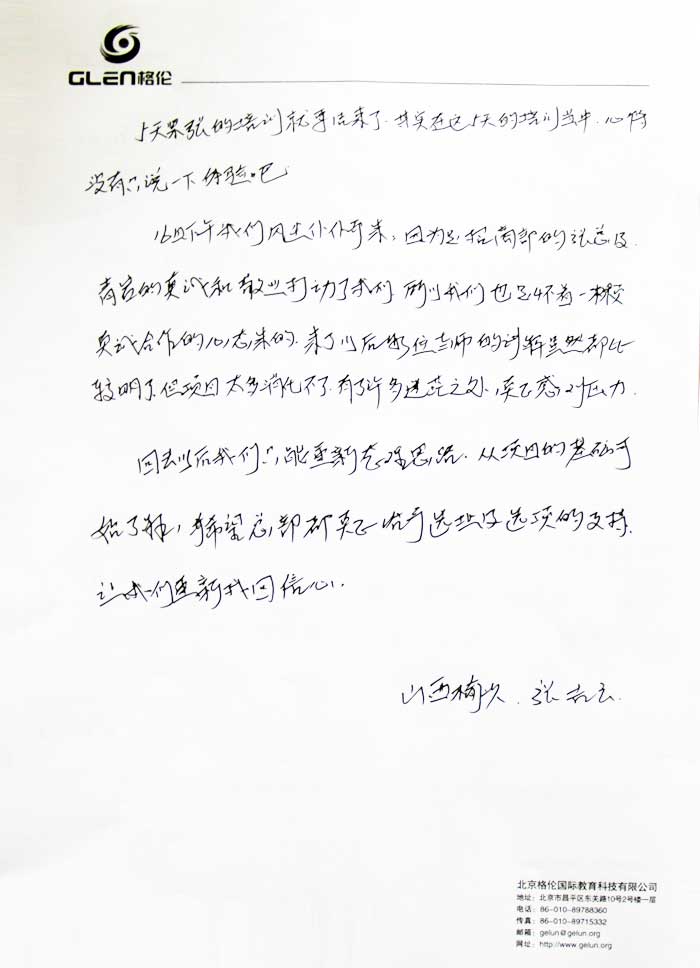 GLEN格伦
5天紧张的培训就要结束了.其实在这5天的培训当中.心得
没有,说一下体验吧
16日下午我们风尘仆仆而来,因为是招商部的张总及
的真诚和敬业打动了我们 所以我们也是怀着一种
真诚合作的心态来的.来了以后各位老师的讲解虽然都比
较明了.但项目太多消化不了.有了许多迷茫之处,真正感到压力.
回去以后我们只能重新整理思路.从项目的基础开
始了解,希望总部都真正给予选址及选项的支持.
让我们重新找回信心.
山西 张志云
北京格伦国际教育科技有限公司
地址:北京市昌平区东关路10号2号楼一层
电话:86-010-89788360
传真:86-010-89715332
邮箱:gelun@gelun.org
网址:http://www.gelun.org